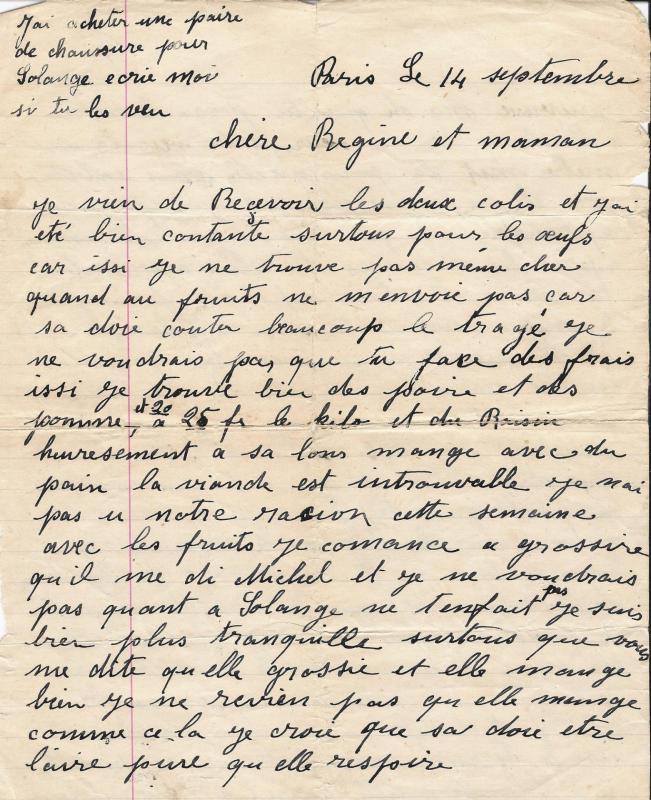 J'ai acheter une paire
de chaussure pour
Solange ecrie moi
si tu les veu
Paris Le 14 septembre
chère Regine et maman
je vien de Recevoir les deux colis et j'ai
eté bien contante surtous pour les œufs
car issi je ne trouve pas même cher
quand au fruits ne m'envoie pas car
sa doie couter beaucoup le tragé je
ne voudrais pas que tu face des frais
issi je trouve bien des poire et des
pomme, et 20 a 25 fr le kilo et du Raisin
hureusement a sa lons mange avec du
pain la viande est introuvable je n'ai
pas u notre racion cette semaine
avec les fruits je comance a grossire
qu'il me di Michel et je ne voudrais
pas quant a Solange ne t'en fait pas je suis
bien plus tranquille surtous que vous
me dite qu'elle grossie et elle mange
bien je ne revien pas qu'elle mange
comme ce la je croie que sa doie etre
l'aire pure qu'elle respoire